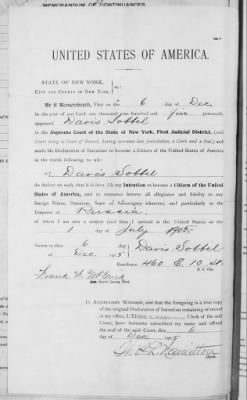 MEMORANDUM OF CONTINUANCES
UNITED STATES OF AMERICA.
STATE OF NEW YORK,
CITY AND COUNTY OF NEW YORK, ss:
Be it Remembered, That on the 6 day of Dec
in the year of our Lord one thousand nine hundred and five personally
appeared Davis Sobbel
in the Supreme Court of the State of New York, First Judicial District, (said
Court being a Court of Record, having common law jurisdiction, a Clerk and a Seal) and
made his Declaration of Intention to become a Citizen of the United States of America
in the words following, to wit:
I, Davis Sobbel
do declare on oath, that it is bona fide my Intention to become a Citizen of the United
States of America, and to renounce forever all allegiance and fidelity to any
foreign Prince, Potentate, State or Sovereignty whatever, and particularly to the
Emperor of Russia
of whom I am now a subject (and that I arrived in the United States on the
1 day of July 1905.
Sworn to this 6 Davis Sobbel
day of Dec 1905
Residence: 460 E. 10 St.
N. Y. City
Frank
In Attestation Whereof, and that the foregoing is a true copy
of the original Declaration of Intention remaining of record
in my office, I, THOS. L. HAMILTON, Clerk of the said
Court, have hereunto subscribed my name and affixed
the seal of the said Court, this 6
day of Dec 1905
Thos. L. Hamilton
Clerk.